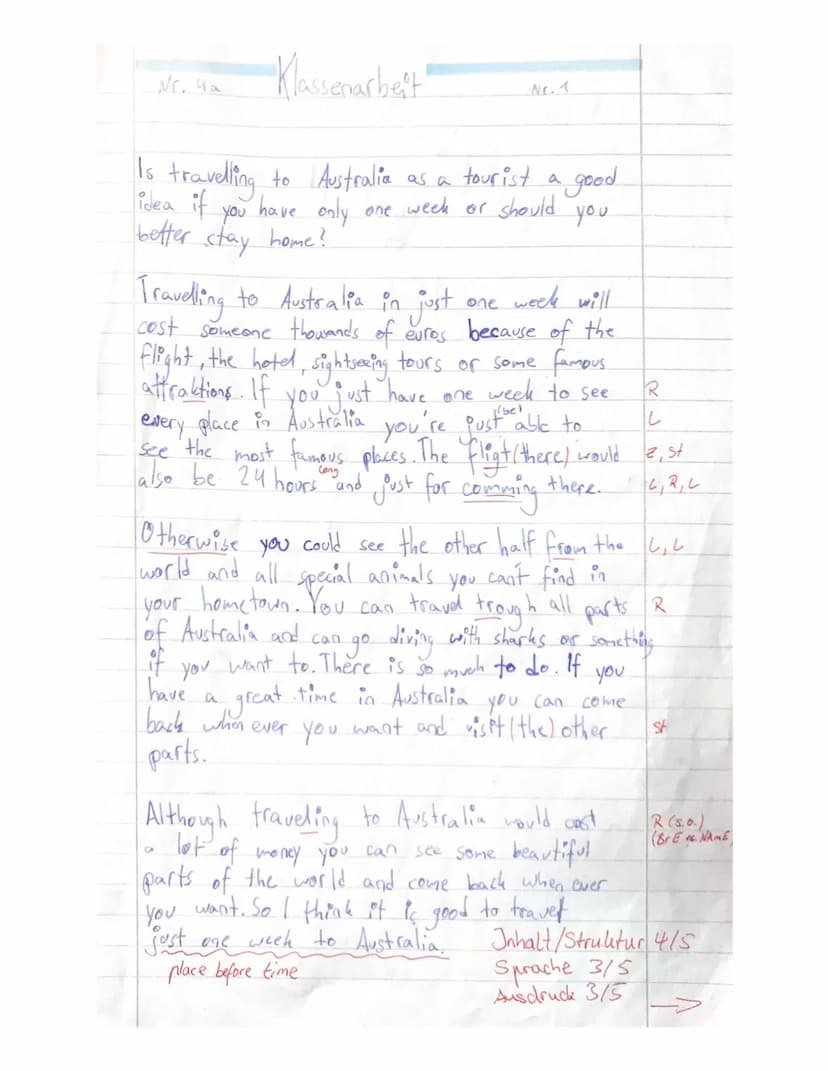 Nr. 4a Klassenarbeit Nr. 1
Is travelling to Australia as a tourist a good
idea if you have only one week or should you
better stay home?
Travelling to Australia in just one week will
cost someone thowands of euros because of the
flight, the hotel, sightseeing tours or some famous
attraktions. If you just have one week to see R
every place in Australia you're just (be) able to L
see the most famous places. The fligt (there) would Z, St
also be 24 hours long and just for comming there. L, R, L
Otherwise you could see the other half from the L, L
world and all special animals you can't find in
your hometown. You can travel trough all parts R
of Australia and can go diving with sharks or something
if you want to. There is so much to do. If you
have a great time in Australia you can come
back when ever you want and visit (the) other St
parts.
Although traveling to Australia would cost R (s.o.)
a lot of money you can see some beautiful (BrE vs. NAmE)
parts of the world and come back when ever
you want. So I think it is good to travel
just one week to Australia. Inhalt/Struktur 4/5
place before time Sprache 3/5
Ausdruck 3/5 →